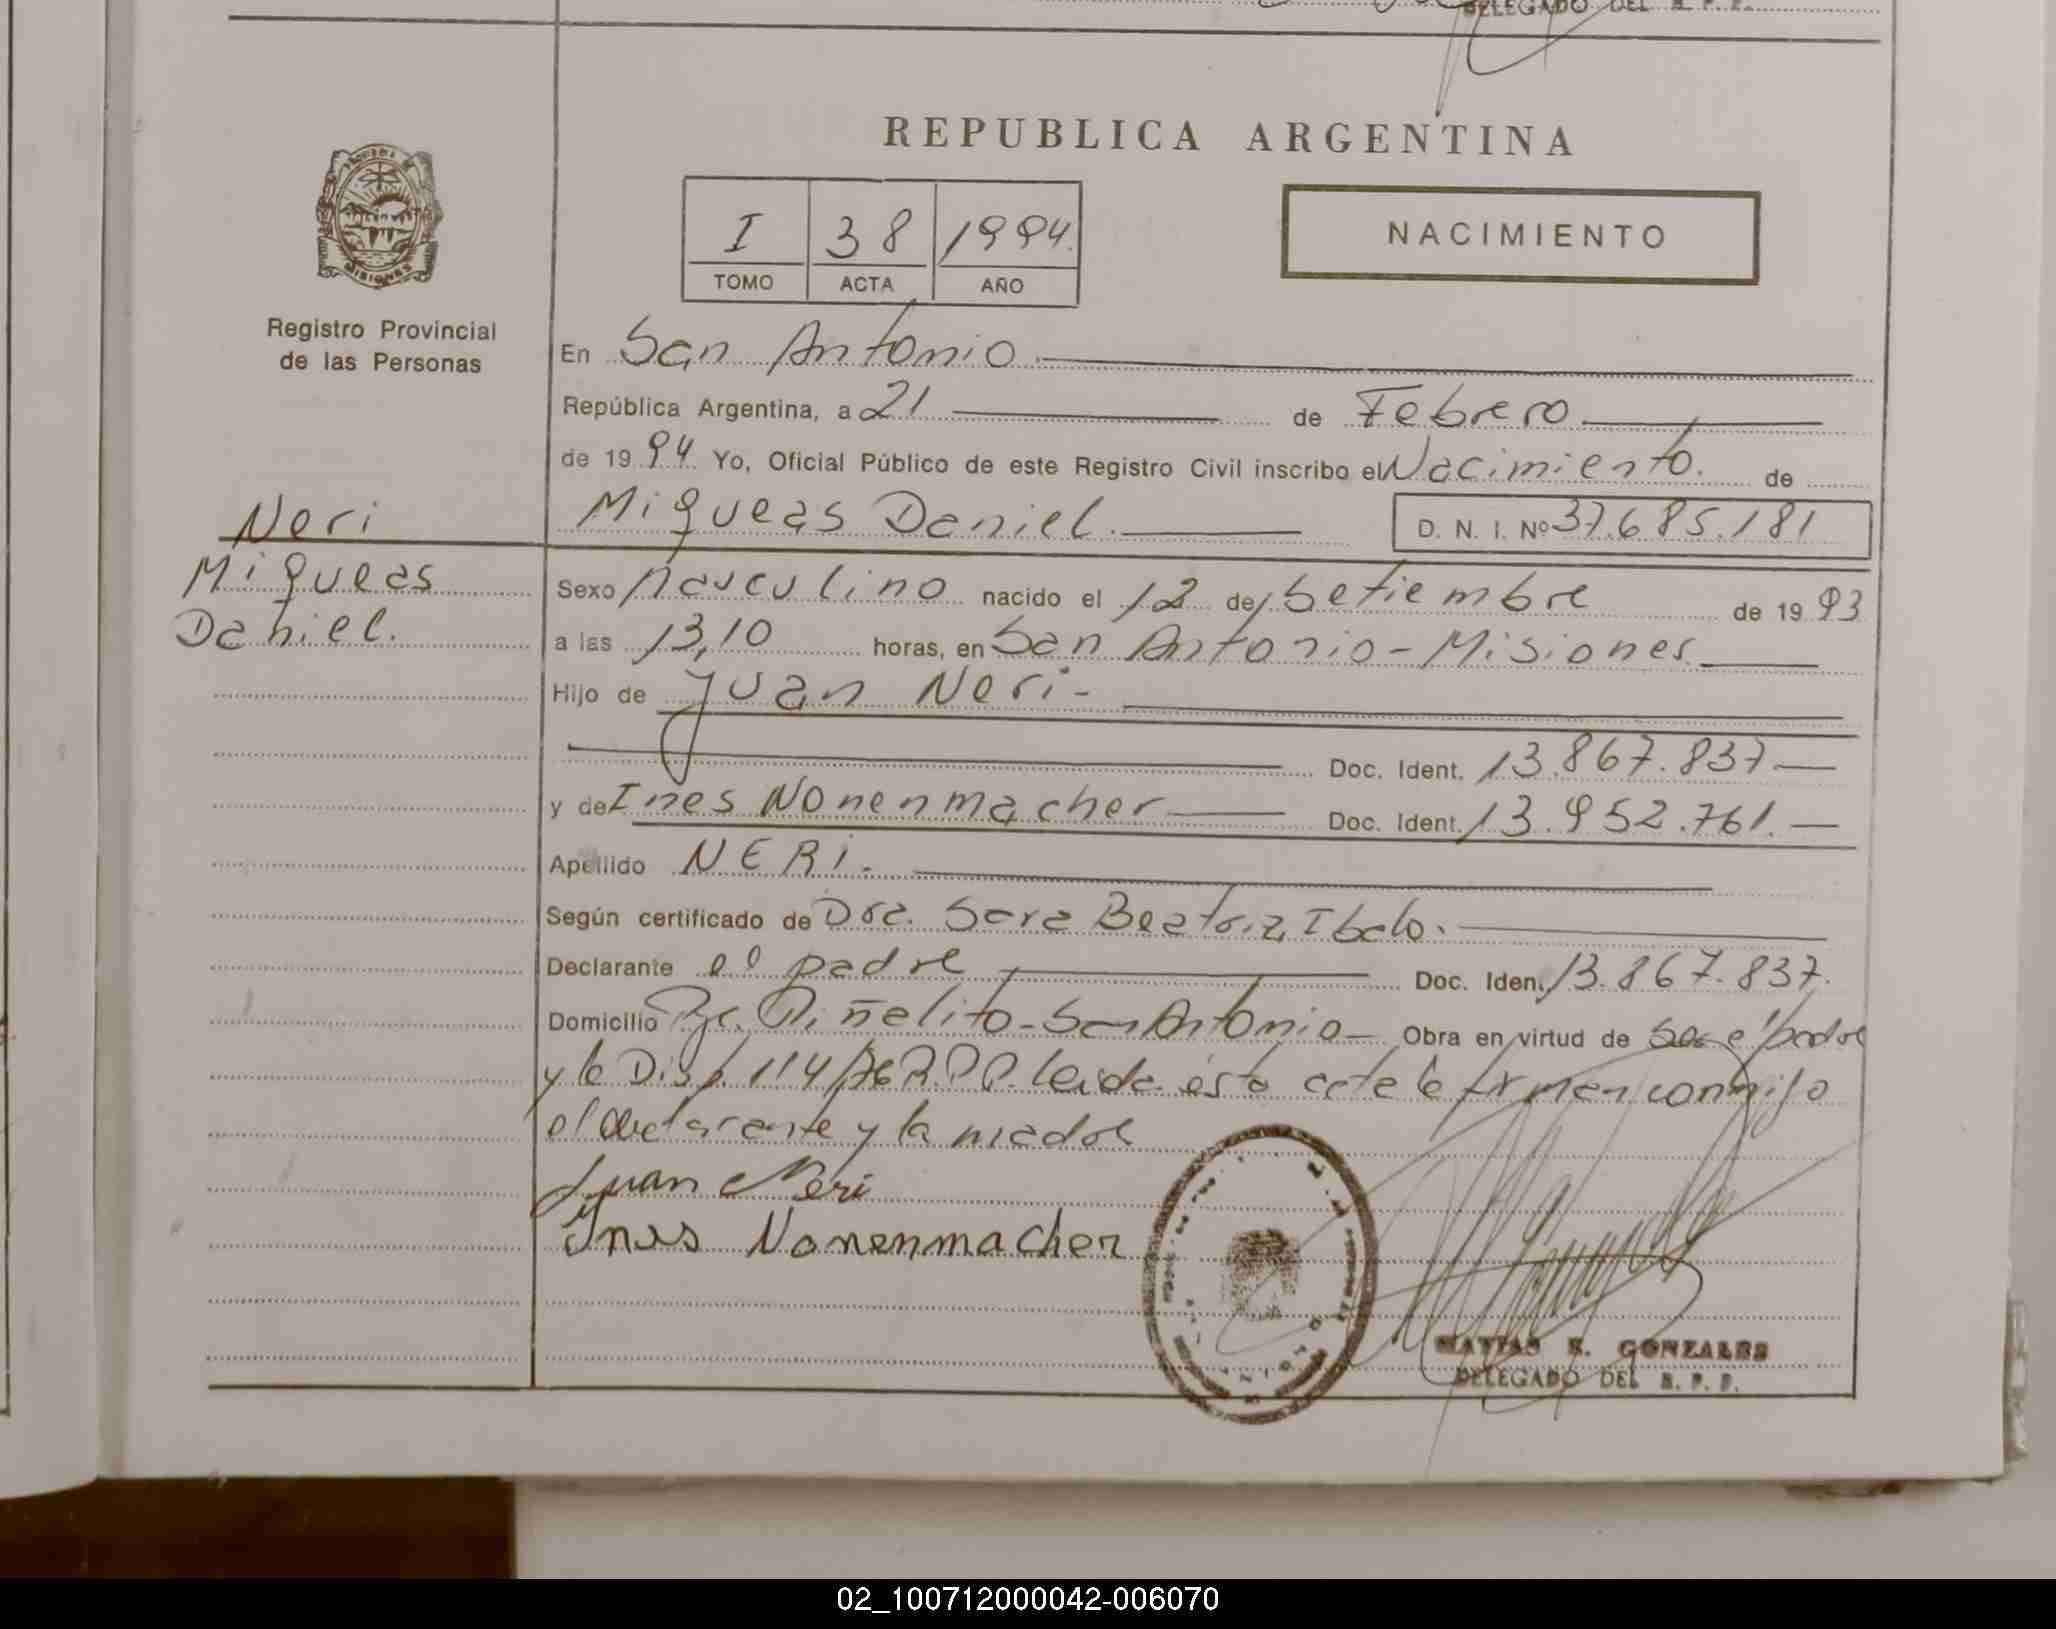 DELEGADO DEL R. P. P.
REPUBLICA ARGENTINA
PROVINCIA DE
MISIONES
I 38 1994
TOMO ACTA AÑO
NACIMIENTO
Registro Provincial
de las Personas
En San Antonio.
República Argentina, a 21 de Febrero
de 1994 Yo, Oficial Público de este Registro Civil inscribo el Nacimiento. de
Miqueas Daniel. D. N. I. Nº 37.685.181
Neri
Miqueas
Daniel.
Sexo Masculino nacido el 12 de Setiembre de 1993
a las 13,10 horas, en San Antonio - Misiones
Hijo de Juan Neri-
Doc. Ident. 13.867.837
y de Ines Nonenmacher Doc. Ident. 13.952.761.
Apellido NERI.
Según certificado de Dra. Sara Beatriz Ibalo.
Declarante el padre Doc. Iden. 13.867.837.
Domicilio Piñelito - San Antonio Obra en virtud de ser el padre
y la Disp. 114/76 leida esta acta la firman conmigo
el declarante y la madre
Juan Neri
Ines Nonenmacher
MATIAS R. GONZALES
DELEGADO DEL R. P. P.
02_100712000042-006070